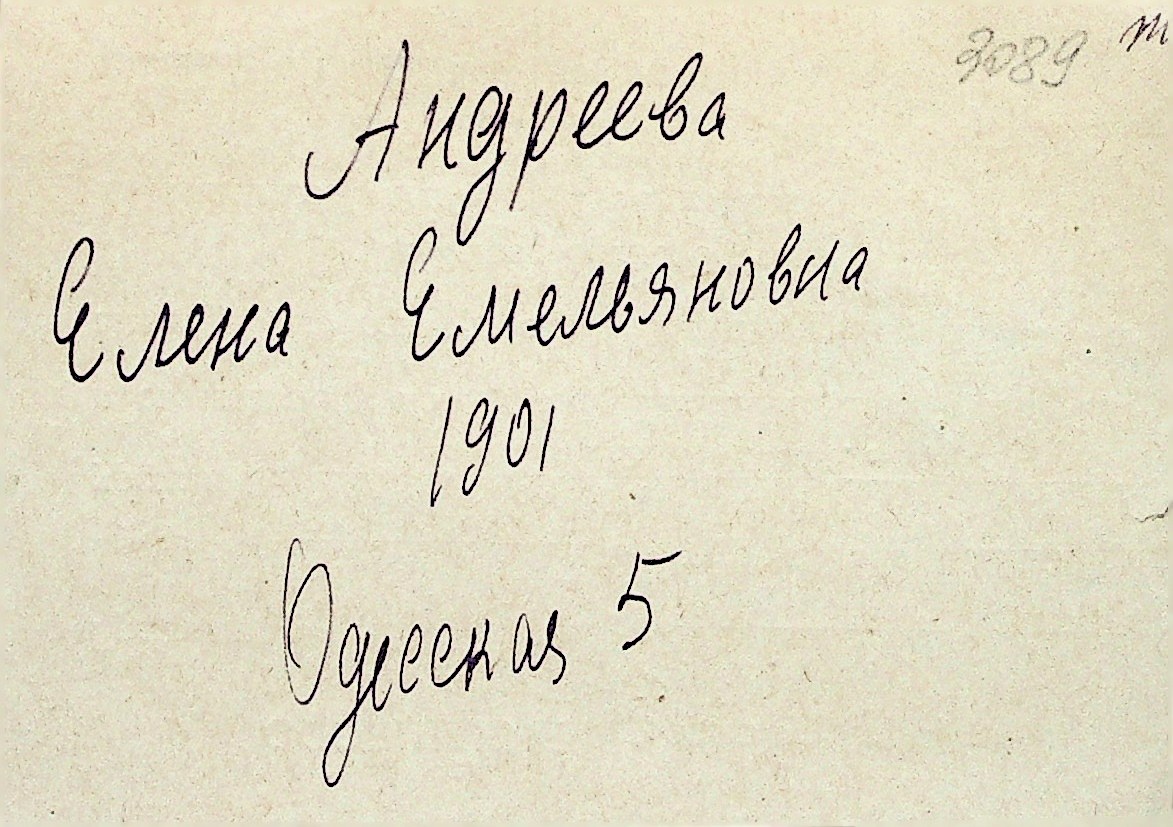 3089 т
Андреева
Елена Емельяновна
1901
Одесская 5